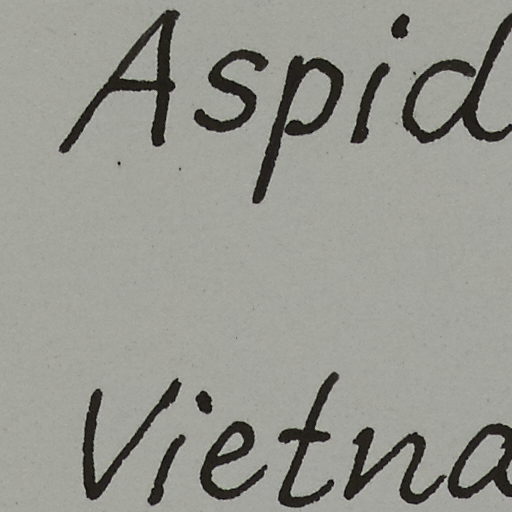 Aspid
Vietna